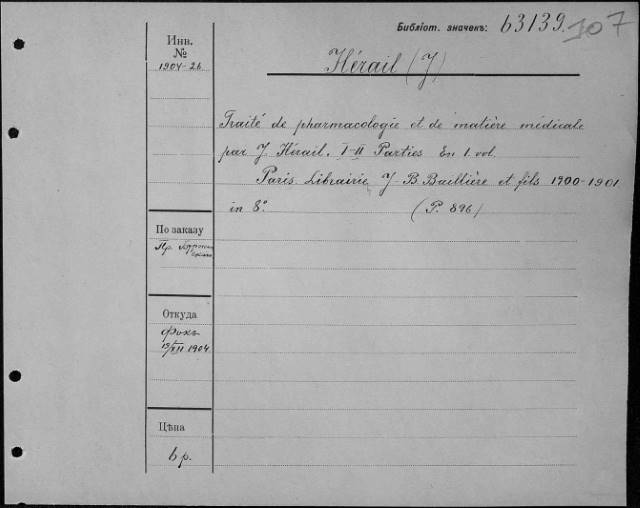 Библіот. значекъ: 63139.
107
Инв.
№
1904-26
Hérail (J)
Traité de pharmacologie et de matière médicale
par J. Hérail. I-II Parties En 1. vol.
Paris. Librairie J-B. Baillière et fils 1900-1901
in 8°. (P. 896)
По заказу
Пр.
Откуда
Фокъ
13/XII 1904
Цѣна
6 р.